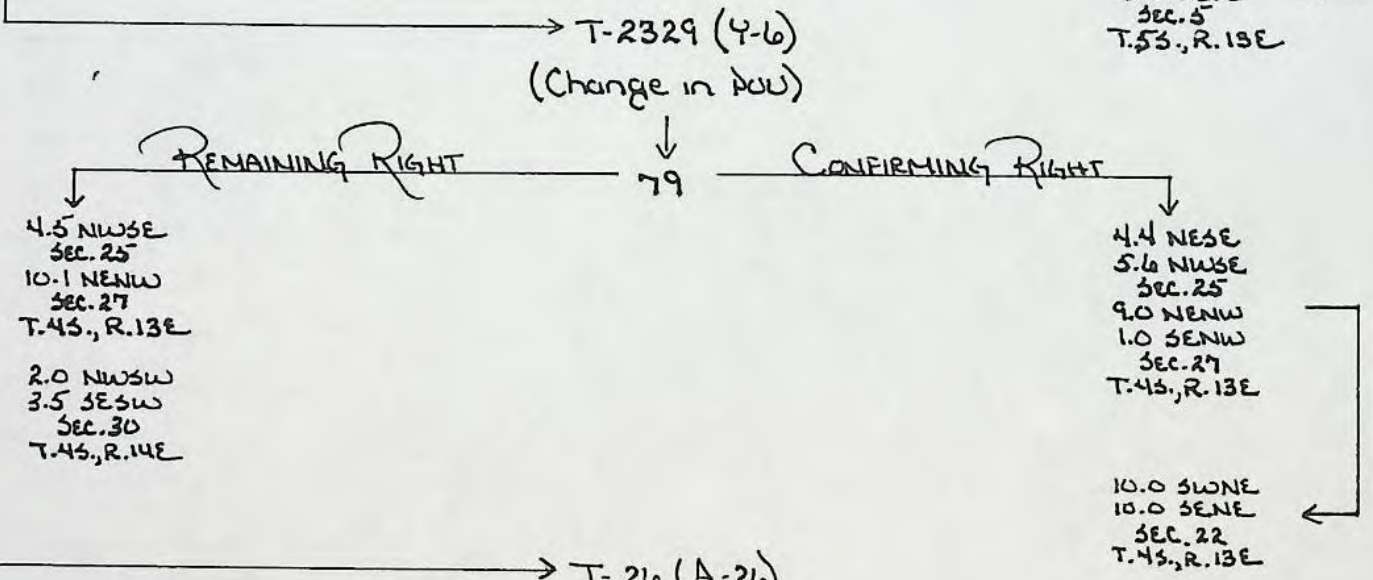 T-2329 (Y-6)
SEC. 5
T.5S., R.13E
(Change in POU)
REMAINING RIGHT
79
CONFIRMING RIGHT
4.5 NWSE
SEC. 25
10.1 NENW
SEC. 27
T.4S., R.13E
2.0 NWSW
3.5 SESW
SEC. 30
T.4S., R.14E
4.4 NESE
5.6 NWSE
SEC. 25
9.0 NENW
1.0 SENW
SEC. 27
T.4S., R.13E
10.0 SWNE
10.0 SENE
SEC. 22
T.4S., R.13E
T-26 (A-26)